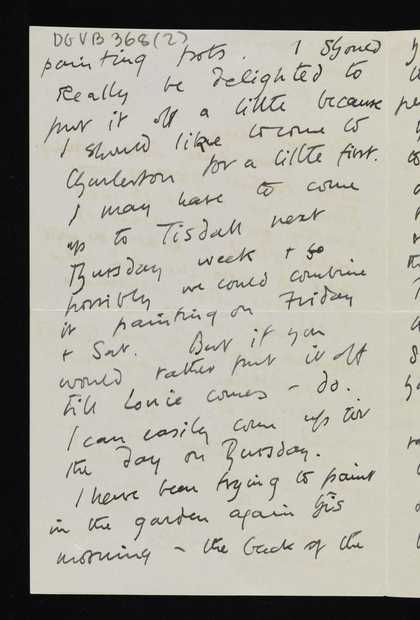 DGVB368(2)
painting pots. I should
really be delighted to
put it off a little because
I should like to come to
Charleston for a little first.
I may have to come
up to Tisdall next
Thursday week & so
possibly we could combine
it painting on Friday
& Sat. But if you
would rather put it off
till Louie comes - do.
I can easily come up for
the day on Thursday.
I have been trying to paint
in the garden again this
morning - the back of the